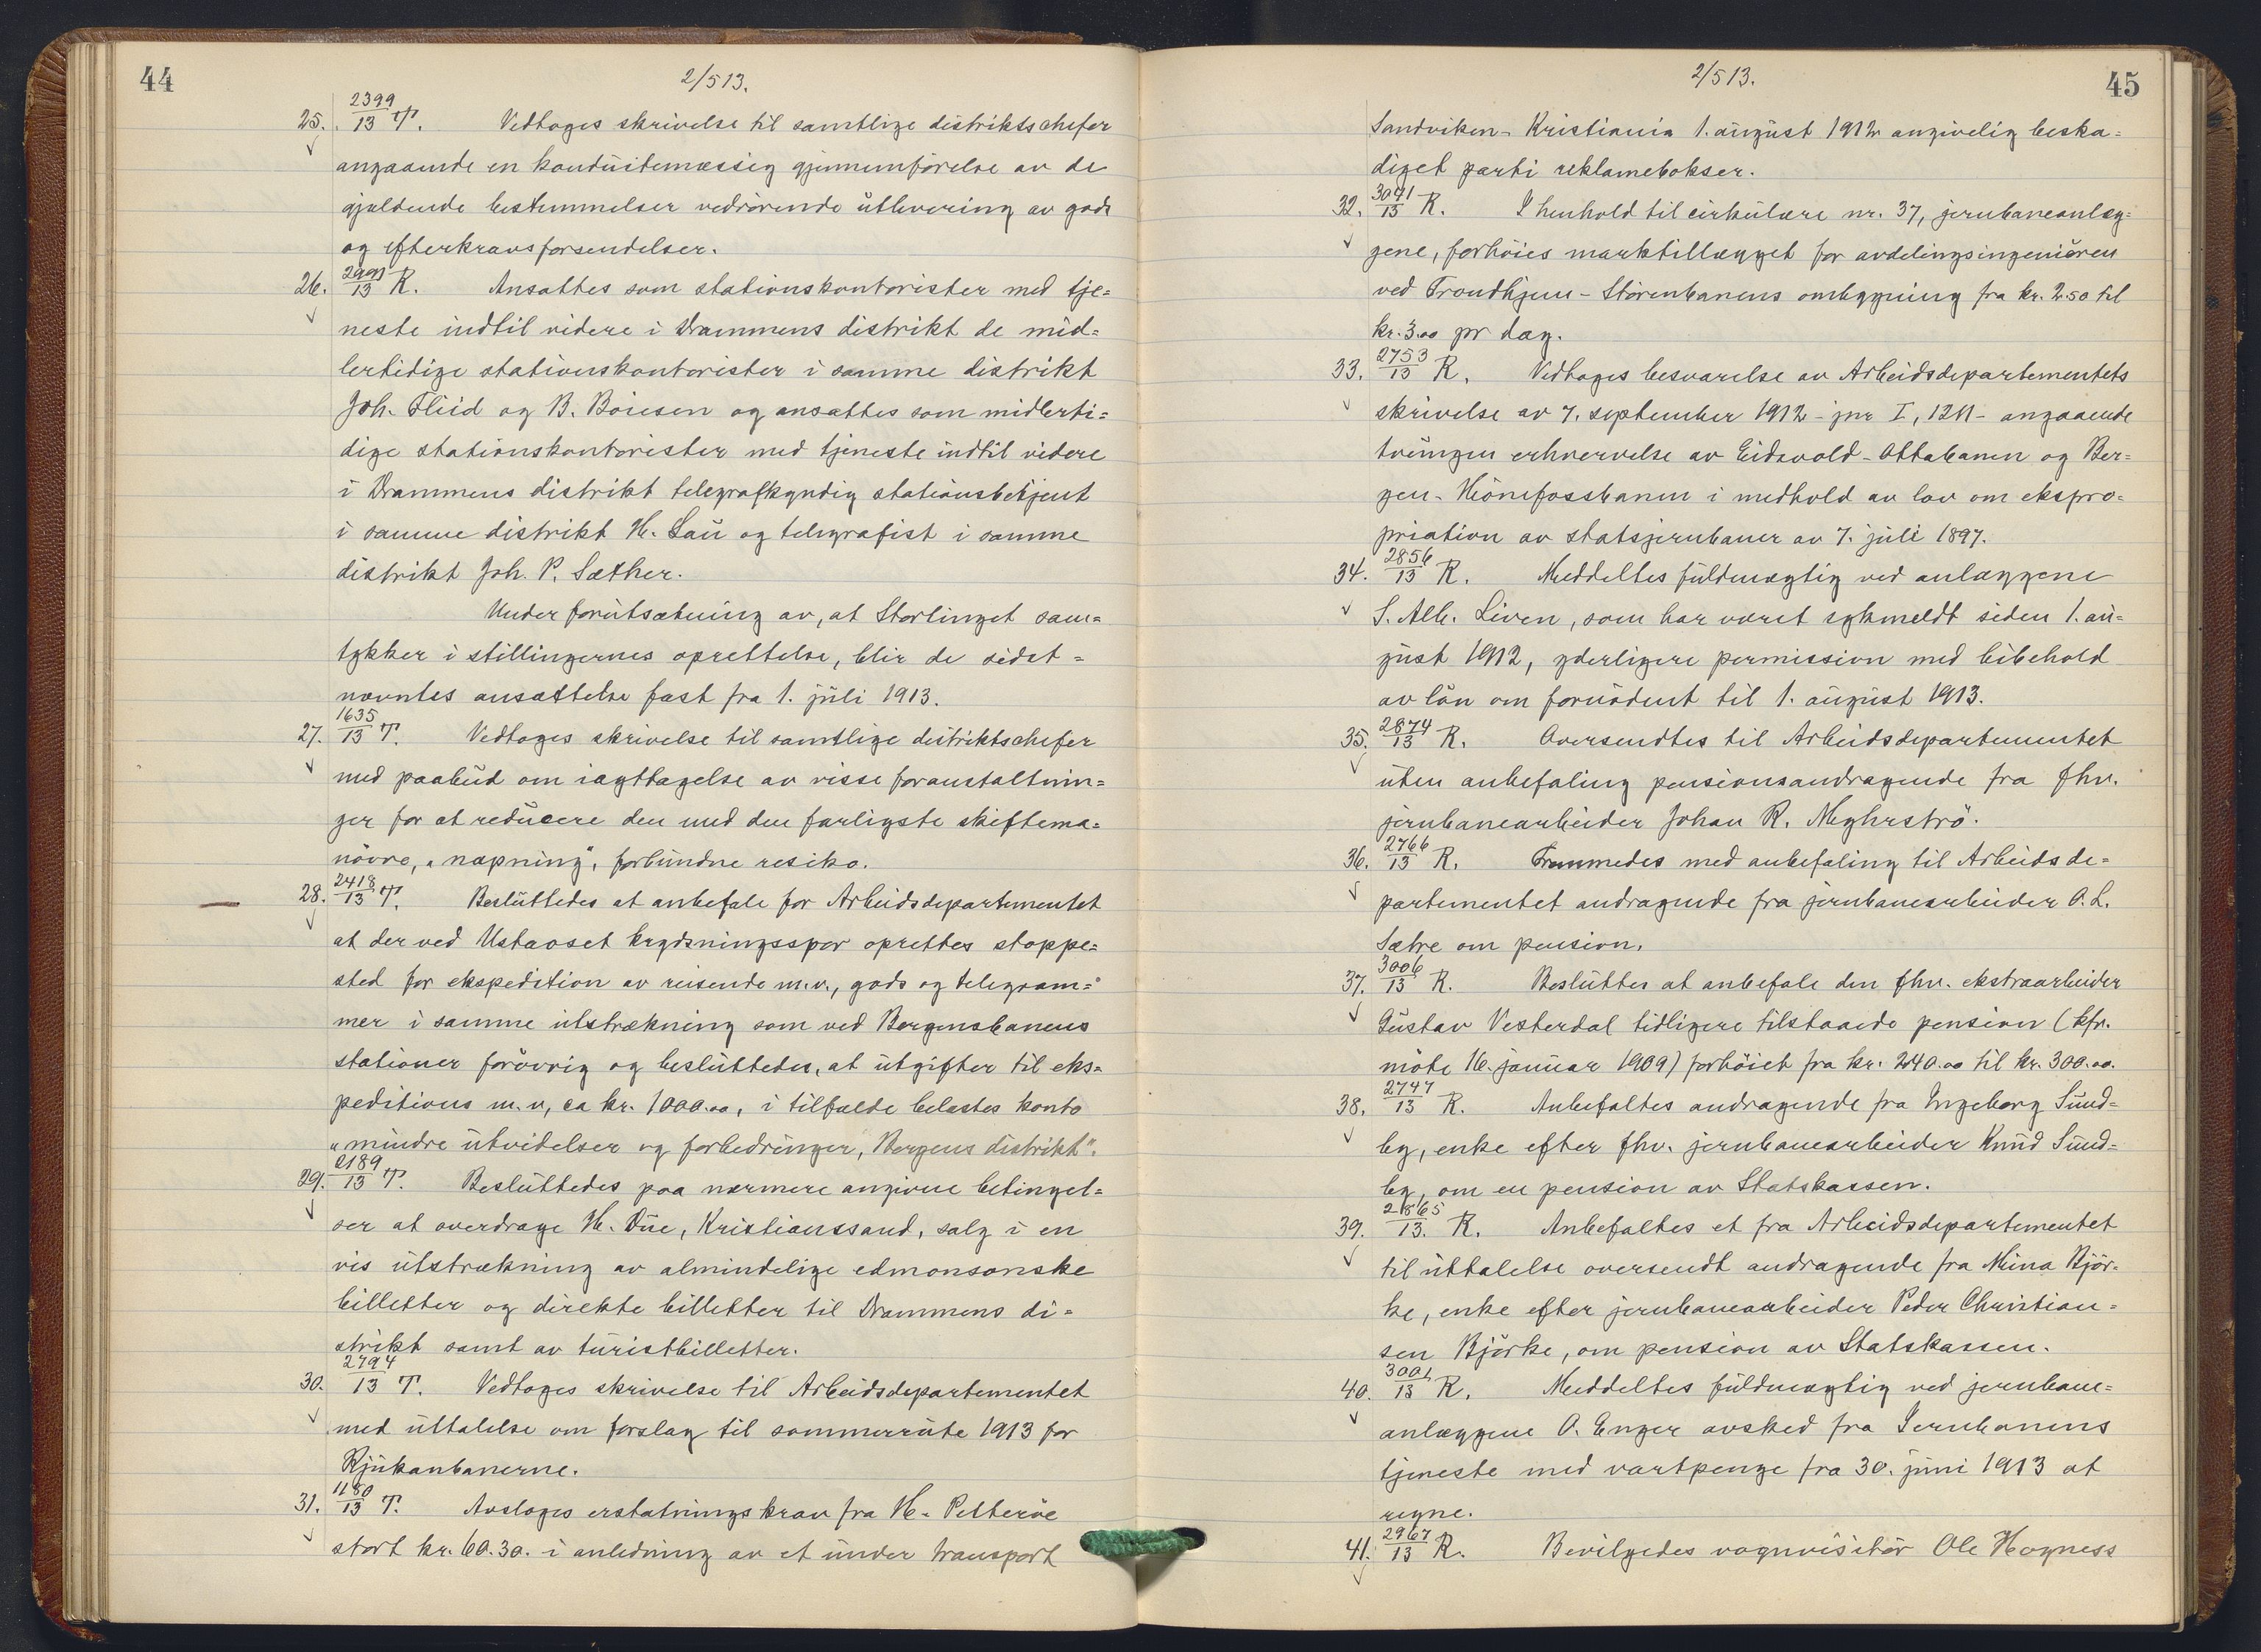 44
2/5 13.
25. 2399/13 T. Vedtoges skrivelse til samtlige distriktschefer
angaaende en konduitemæssig gjennemförelse av de
gjældende bestemmelser vedrörende utlevering av gods
og efterkravsforsendelser.
26. 2991/13 R. Ansattes som stationskontorister med tje=
neste indtil videre i Drammens distrikt de mid=
lertidige stationskontorister i samme distrikt
Joh. Fliid og B. Boiesen og ansattes som midlerti=
dige stationskontorister med tjeneste indtil videre
i Drammens distrikt telegrafkyndig stationsbetjent
i samme distrikt H. Lau og telegrafist i samme
distrikt Joh. P. Sæther.
Under forutsætning av, at Stortinget sam=
tykker i stillingernes oprettelse, blir de sidst=
nævntes ansættelse fast fra 1. juli 1913.
27. 1635/13 T. Vedtoges skrivelse til samtlige distriktschefer
med paabud om iagttagelse av visse foranstaltnin=
ger for at reducere den med den farligste skiftema=
növre, "napning", forbundne resiko.
28. 2418/13 T. Besluttedes at anbefale for Arbeidsdepartementet
at der ved Ustaoset krydsningsspor oprettes stoppe=
sted for ekspedition av reisende m.v., gods og telegram=
mer i samme utstrækning som ved Bergensbanens
stationer forövrig og besluttedes, at utgifter til eks=
peditions m.v, ca kr. 1000.00, i tilfælde belastes konto
"mindre utvidelser og forbedringer, Bergens distrikt".
29. 2189/13 T. Besluttedes paa nærmere angivne betingel=
ser at overdrage H. Due, Kristianssand, salg i en
vis utstrækning av almindelige edmonsonske
billetter og direkte billetter til Drammens di=
strikt samt av turistbilletter.
30. 2794/13 T. Vedtoges skrivelse til Arbeidsdepartementet
med uttalelse om forslag til sommerrute 1913 for
Rjukanbanerne.
31. 1180/13 T. Avsloges erstatningskrav fra H. Petteröe
stort kr. 60.30. i anledning av et under transport
45
2/5 13.
Sandviken - Kristiania 1. august 1912 angivelig beska=
diget parti reklamebokser.
32. 3041/13 R. I henhold til cirkulære nr. 37, jernbaneanlæg=
gene, forhöies marktillægget for avdelingsingeniören
ved Trondhjem - Störenbanens ombygning fra kr. 2.50 til
kr. 3.00 pr dag.
33. 2753/13 R. Vedtoges besvarelse av Arbeidsdepartementets
skrivelse av 7. september 1912 - jnr I, 1211 - angaaende
tvungen erhvervelse av Eidsvold - Ottabanen og Ber=
gen - Hönefossbanen i medhold av lov om ekspro=
priation av statsjernbaner av 7. juli 1897.
34. 2856/13 R. Meddeltes fuldmægtig ved anlæggene
S. Alb. Liven, som har været sykmeldt siden 1. au=
gust 1912, yderligere permission med bibehold
av lön om fornödent til 1. august 1913.
35. 2874/13 R. Oversendtes til Arbeidsdepartementet
uten anbefaling pensionsandragende fra fhv.
jernbanearbeider Johan R. Myhrströ.
36. 2766/13 R. Fremmedes med anbefaling til Arbeidsde=
partementet andragende fra jernbanearbeider O. L.
Sætre om pension.
37. 3006/13 R. Beslutter at anbefale den fhv. ekstraarbeider
Gustav Vesterdal tidligere tilstaaede pension (kfr.
möte 16. januar 1909) forhöiet fra kr. 240.00 til kr. 300.00.
38. 2747/13 R. Anbefaltes andragende fra Ingeborg Sund=
by, enke efter fhv. jernbanearbeider Knud Sund=
by, om en pension av Statskassen.
39. 2865/13. R. Anbefaltes et fra Arbeidsdepartementet
til uttalelse oversendt andragende fra Mina Björ=
ke, enke efter jernbanearbeider Peder Christian=
sen Björke, om pension av Statskassen.
40. 3001/13 R. Meddeltes fuldmægtig ved jernbane=
anlæggene O. Enger avsked fra Jernbanens
tjeneste med vartpenge fra 30. juni 1913 at
regne.
41. 2967/13 R. Bevilgedes vognvisitör Ole Hogness